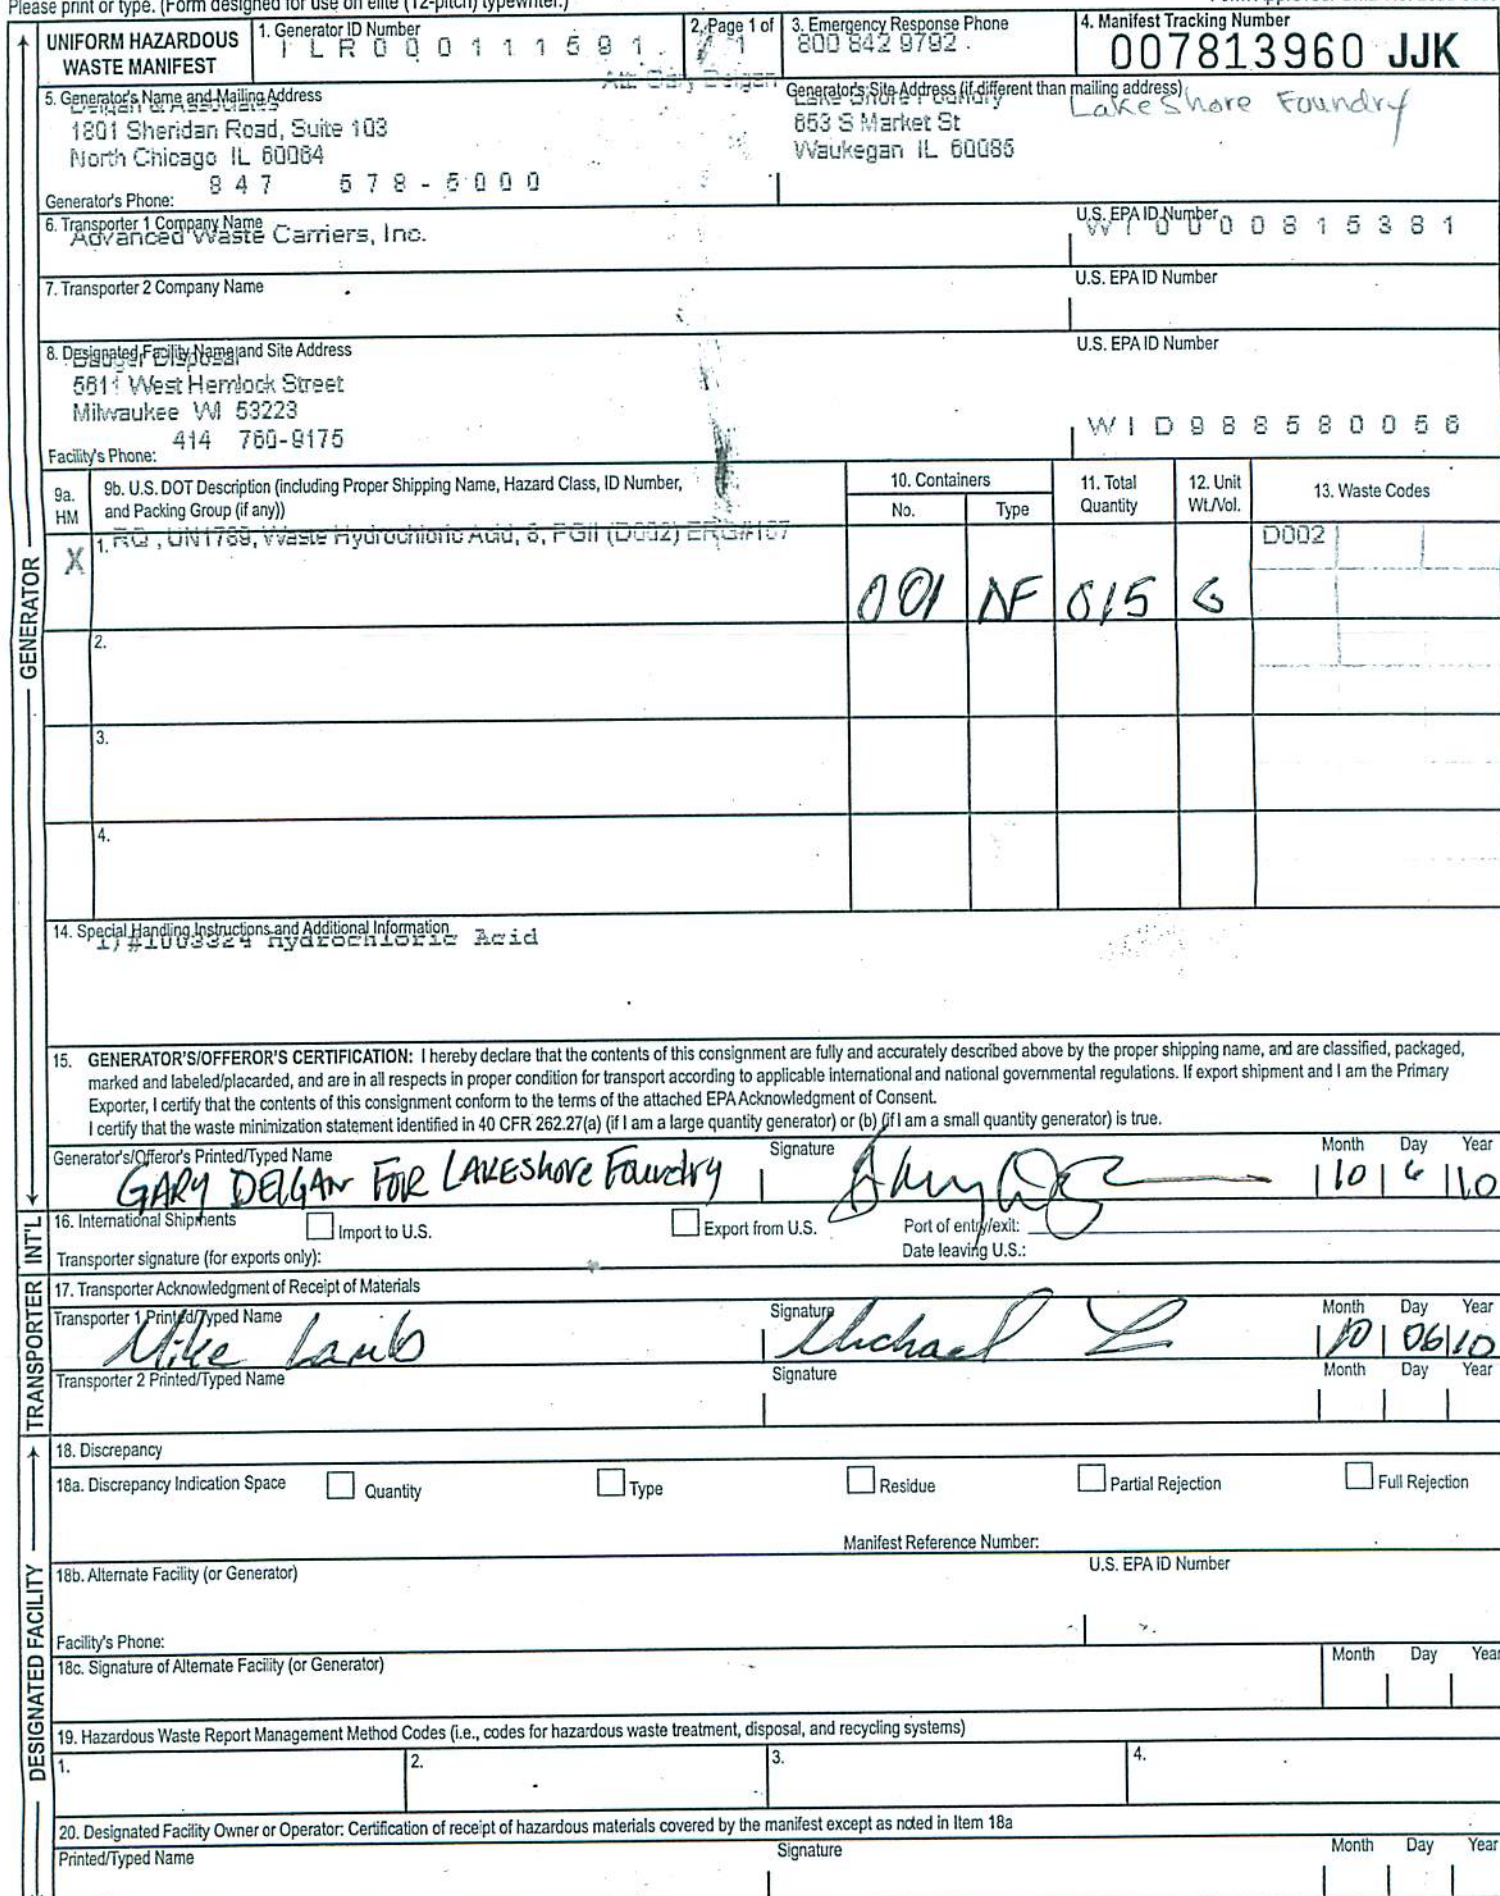 Please print or type. (Form designed for use on elite (12-pitch) typewriter.)
UNIFORM HAZARDOUS WASTE MANIFEST
1. Generator ID Number
I L R 0 0 0 1 1 1 5 9 1
2. Page 1 of
1
3. Emergency Response Phone
800 842 9792
4. Manifest Tracking Number
007813960 JJK
5. Generator's Name and Mailing Address
Attn: Gary Deigan
Deigan & Associates
1801 Sheridan Road, Suite 103
North Chicago IL 60064
Generator's Phone: 847 578-5000
Generator's Site Address (if different than mailing address)
Lake Shore Foundry
Lake Shore Foundry
653 S Market St
Waukegan IL 60085
6. Transporter 1 Company Name
Advanced Waste Carriers, Inc.
U.S. EPA ID Number
W I 0 0 0 0 8 1 5 3 8 1
7. Transporter 2 Company Name
U.S. EPA ID Number
8. Designated Facility Name and Site Address
Badger Disposal
5611 West Hemlock Street
Milwaukee WI 53223
414 760-9175
Facility's Phone:
U.S. EPA ID Number
W I D 9 8 8 5 8 0 0 5 6
9a. HM
9b. U.S. DOT Description (including Proper Shipping Name, Hazard Class, ID Number, and Packing Group (if any))
10. Containers
No.
Type
11. Total Quantity
12. Unit Wt./Vol.
13. Waste Codes
X
1. RQ, UN1789, Waste Hydrochloric Acid, 8, PGII (D002) ERG#157
001 DF 015 G
D002
2.
3.
4.
14. Special Handling Instructions and Additional Information
1)#1003324 Hydrochloric Acid
15. GENERATOR'S/OFFEROR'S CERTIFICATION: I hereby declare that the contents of this consignment are fully and accurately described above by the proper shipping name, and are classified, packaged,
marked and labeled/placarded, and are in all respects in proper condition for transport according to applicable international and national governmental regulations. If export shipment and I am the Primary
Exporter, I certify that the contents of this consignment conform to the terms of the attached EPA Acknowledgment of Consent.
I certify that the waste minimization statement identified in 40 CFR 262.27(a) (if I am a large quantity generator) or (b) (if I am a small quantity generator) is true.
Generator's/Offeror's Printed/Typed Name
Signature
Month Day Year
GARY DEIGAN FOR LAKEShore Foundry
10 6 10
16. International Shipments
Import to U.S.
Export from U.S.
Port of entry/exit:
Transporter signature (for exports only):
Date leaving U.S.:
17. Transporter Acknowledgment of Receipt of Materials
Transporter 1 Printed/Typed Name
Signature
Month Day Year
Mike Lamb
Michael
10 06 10
Transporter 2 Printed/Typed Name
Signature
Month Day Year
18. Discrepancy
18a. Discrepancy Indication Space
Quantity
Type
Residue
Partial Rejection
Full Rejection
Manifest Reference Number:
18b. Alternate Facility (or Generator)
U.S. EPA ID Number
Facility's Phone:
18c. Signature of Alternate Facility (or Generator)
Month Day Year
19. Hazardous Waste Report Management Method Codes (i.e., codes for hazardous waste treatment, disposal, and recycling systems)
1.
2.
3.
4.
20. Designated Facility Owner or Operator: Certification of receipt of hazardous materials covered by the manifest except as noted in Item 18a
Printed/Typed Name
Signature
Month Day Year
GENERATOR
INT'L
TRANSPORTER
DESIGNATED FACILITY